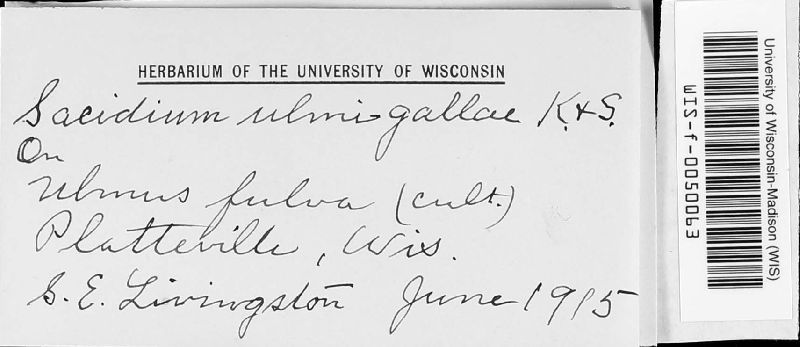 HERBARIUM OF THE UNIVERSITY OF WISCONSIN
Sacidium ulmi-gallae K.&S.
On
Ulmus fulva (cult.)
Platteville, Wis.
S.E. Livingston June 1915
University of Wisconsin-Madison (WIS)
WIS-f-0050063